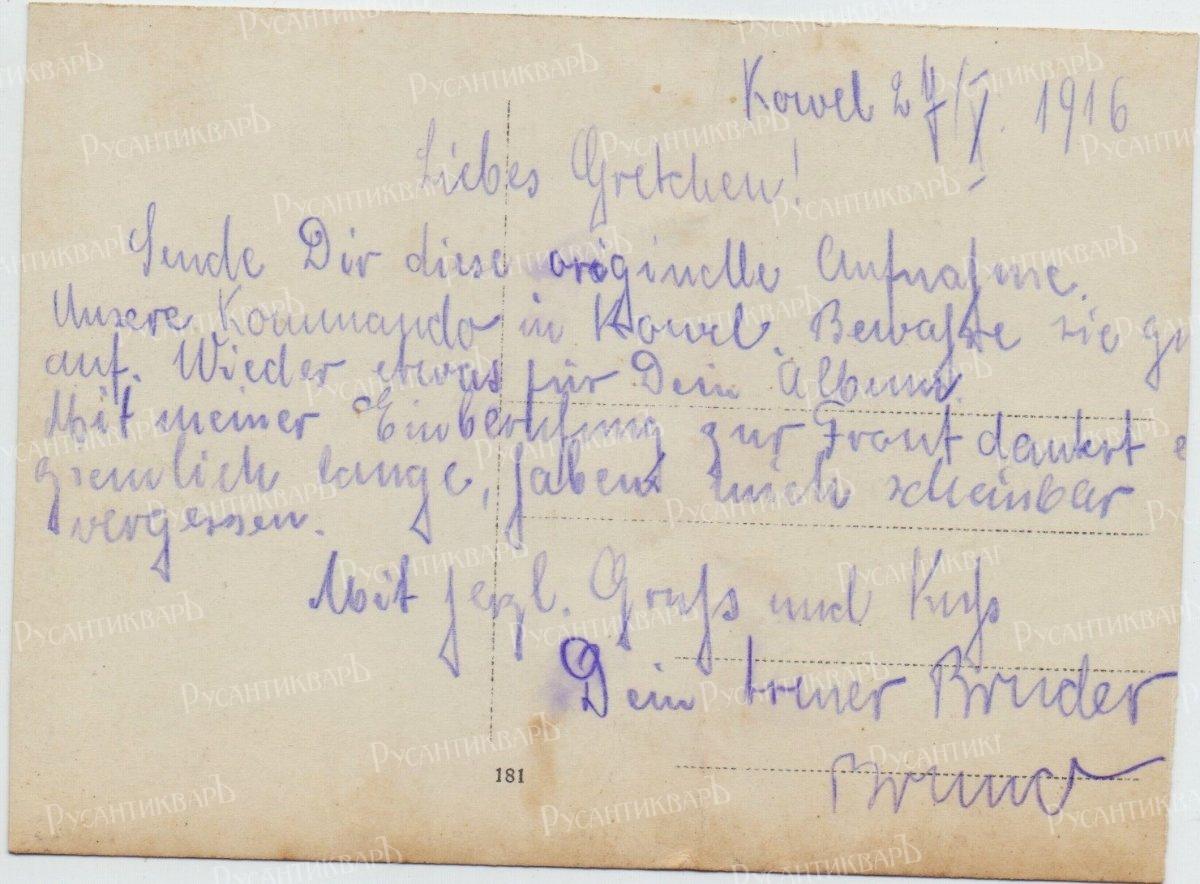 Kowel 27/V. 1916
Liebes Gretchen!
Sende Dir diese originelle Aufnahme.
Unsere Kommando in Kowel. Bewahre sie gu
auf. Wieder etwas für Dein Album.
Mit meiner Einberufung zur Front dauert e
ziemlich lange, haben mich scheinbar
vergessen.
Mit herzl. Gruss und Kuss
Dein treuer Bruder
Bruno
181
РусантикварЪ